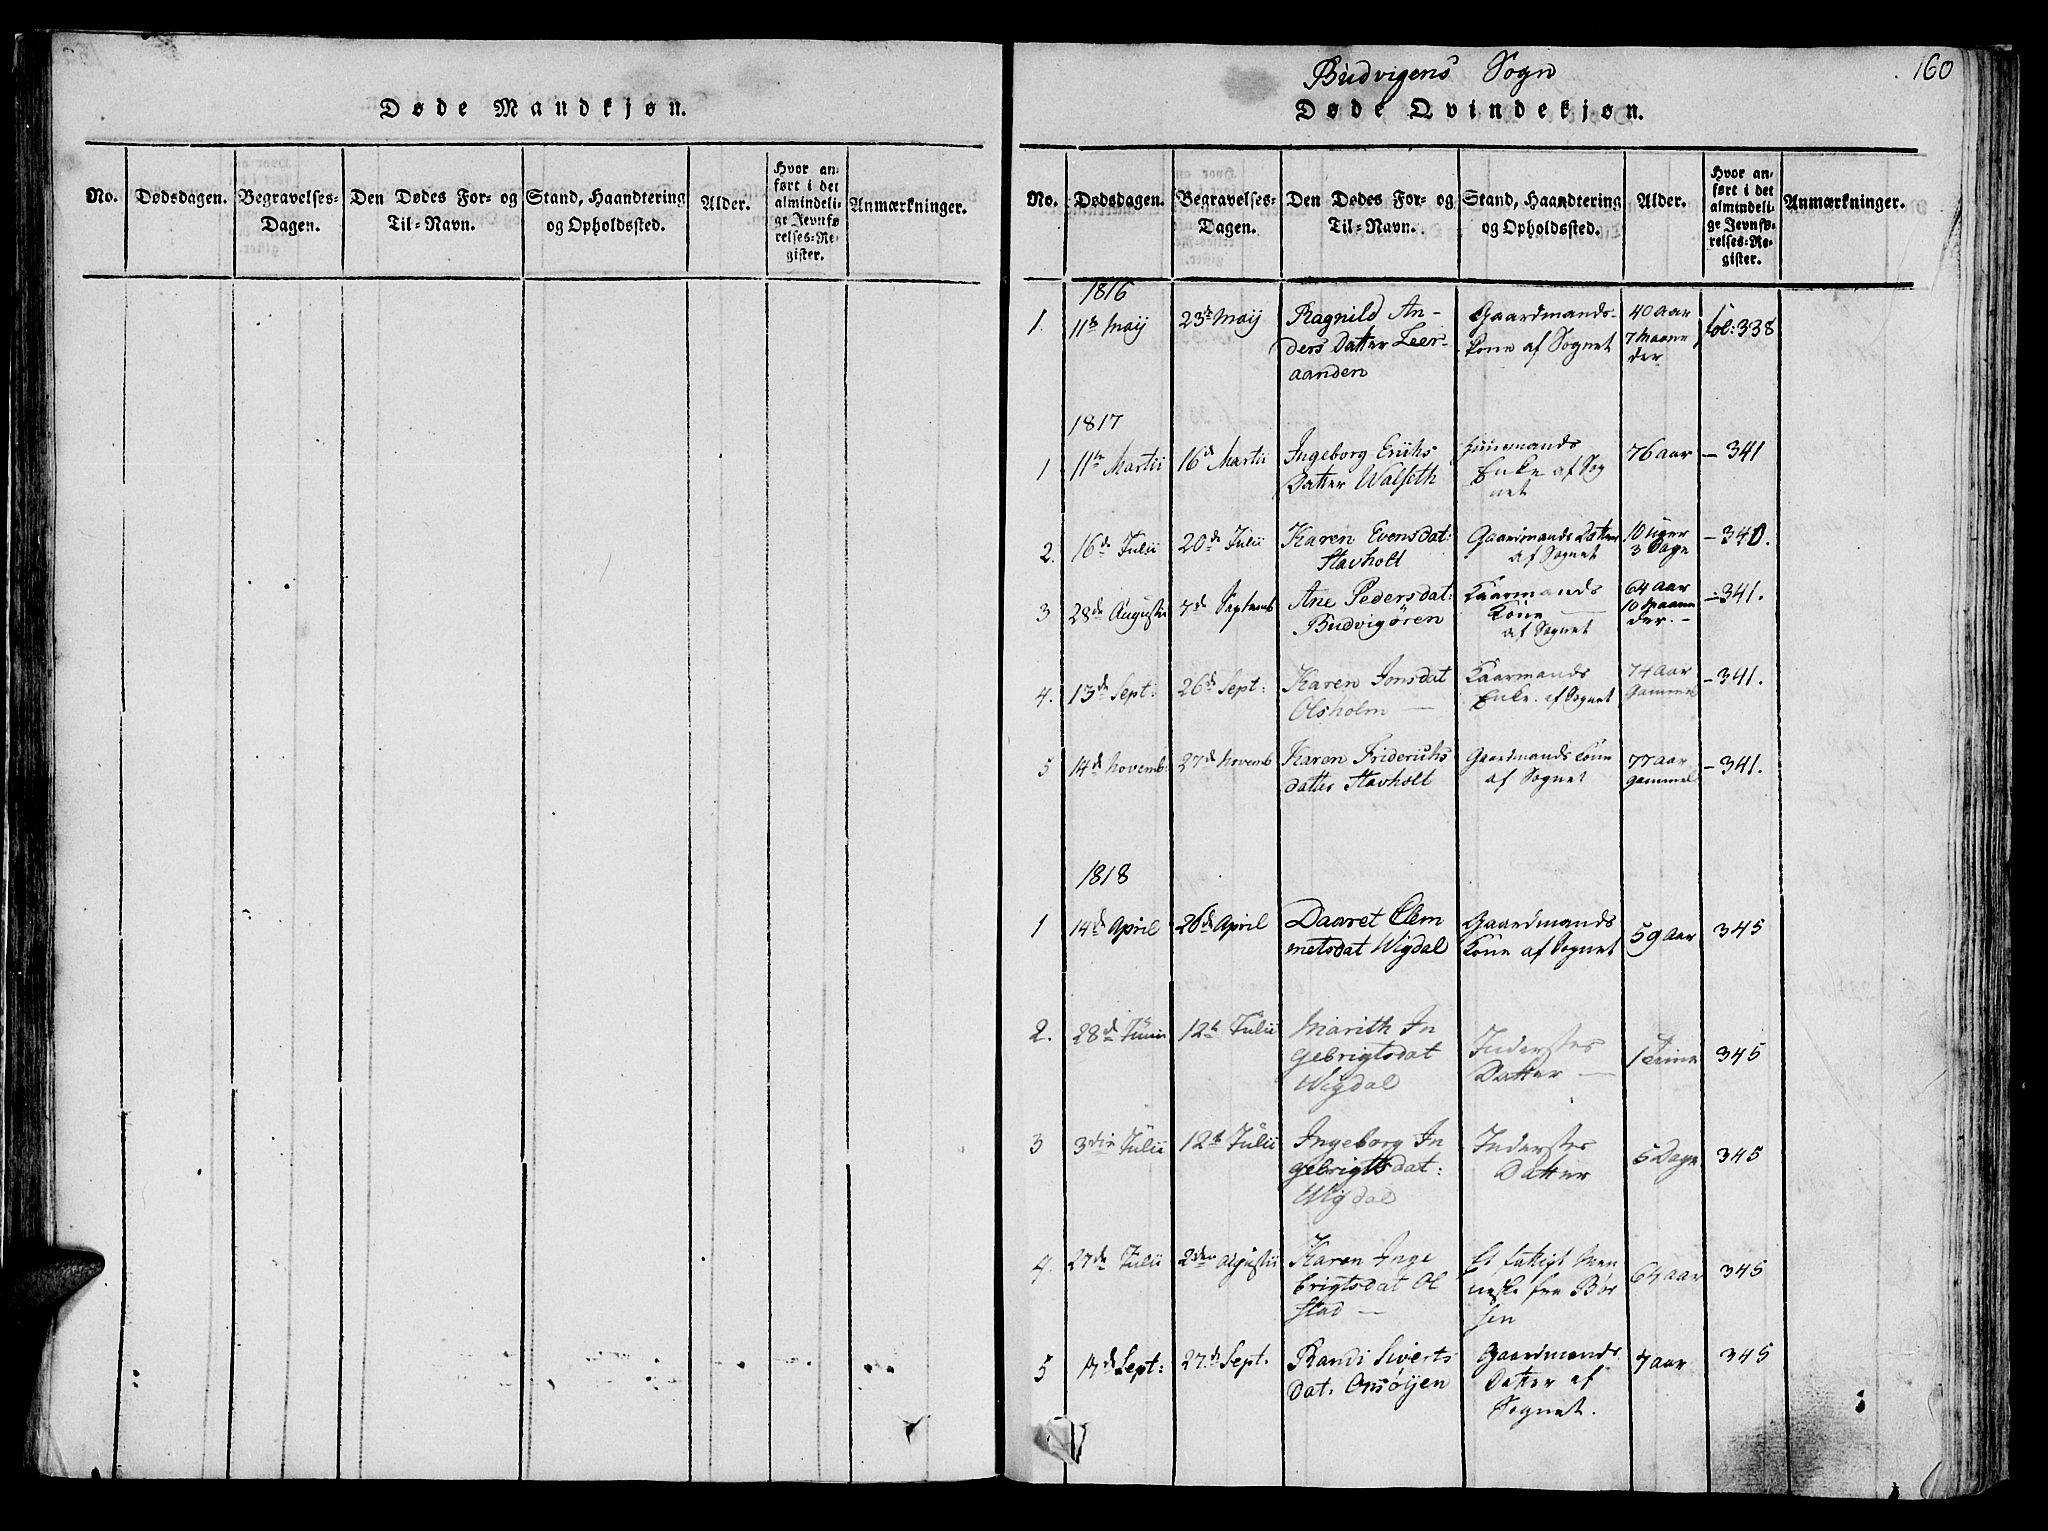 Døde Mandkjøn.
No.
Dødsdagen.
Begravelses-
Dagen.
Den Dødes For- og
Til-Navn.
Stand, Haandtering
og Opholdssted.
Alder.
Hvor an-
ført i det
almindeli-
ge Jevnfø-
relses-Re-
gister.
Anmærkninger.
Budvigens Sogn
160
Døde Qvindekjøn.
No.
Dødsdagen.
Begravelses-
Dagen.
Den Dødes For- og
Til-Navn.
Stand, Haandtering
og Opholdssted.
Alder.
Hvor an-
ført i det
almindeli-
ge Jevnfø-
relses-Re-
gister.
Anmærkninger.
1816
1.
11te Maij
23de Maij
Ragnild An-
ders Datter Leer-
aanden
Gaardmands-
kone af Sognet
40 aar
7 Maane
der
fol: 338
1817
1
11te Martii
16de Martii
Ingeborg Erichs
Datter Walseth
Huusmands
Enke af Sog
net
76 aar
- 341
2.
16de Julii
20de Julii
Karen Evensdat:
Stavholt
Gaardmands Datter
af Sognet
10 uger
3 Dage
- 340.
3
28de Augusti
7de Septemb
Ane Pedersdat:
Budvigøren
Kaarmands
Kone
af Sognet
64 aar
10 Maane
der. -
- 341.
4.
13de Sept:
26de Sept:
Karen Jonsdat
Olsholm -
Kaarmands
Enke. af Sognet
74 aar
gammel
- 341.
5
14de Novemb:
27de Novemb
Karen Friderichs
datter Stavholt
Gaardmands Kone
af Sognet
77 aar
gammel
- 341.
1818
1
14de April
26de April
Daaret Clem
metsdat Wigdal
Gaardmands
Kone af Sognet
59 aar
345
2.
28de Junii
12te Julii
Marith In
gebrigtsdat
Wigdal
Inderstes
Datter -
1 Time
345
3
3die Julii
12te Julii
Ingeborg In
gebrigtsdat:
Wigdal
Inderstes
Datter
5 Dage
345
4.
27de Julii
2den Augustii
Karen Inge
brigtsdat Ol
stad -
Et fattigt Men
neske fra Bør
sen
64 aar
345
5
Sept:
27de Sept.
Randi Siverts
dat. Onsøijen
Gaardmands
Datter af
Sognet.
7 aar
345